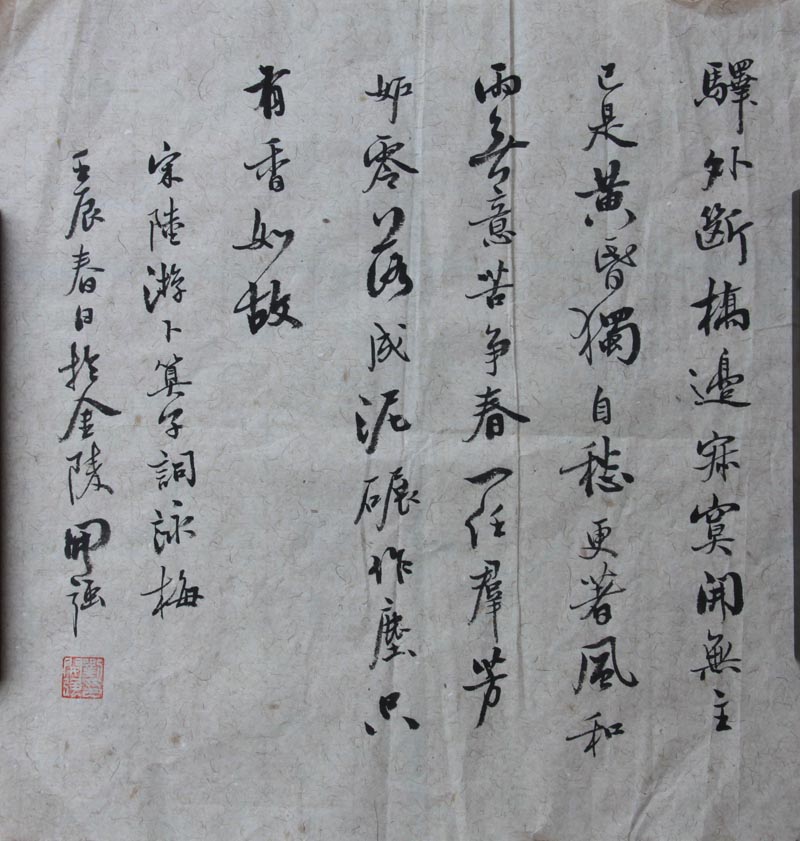 驛外斷橋邊寂寞開無主
已是黃昏獨自愁更著風和
雨無意苦爭春一任羣芳
妒零落成泥碾作塵只
有香如故
宋陸游卜算子詞詠梅
壬辰春日於金陵開強